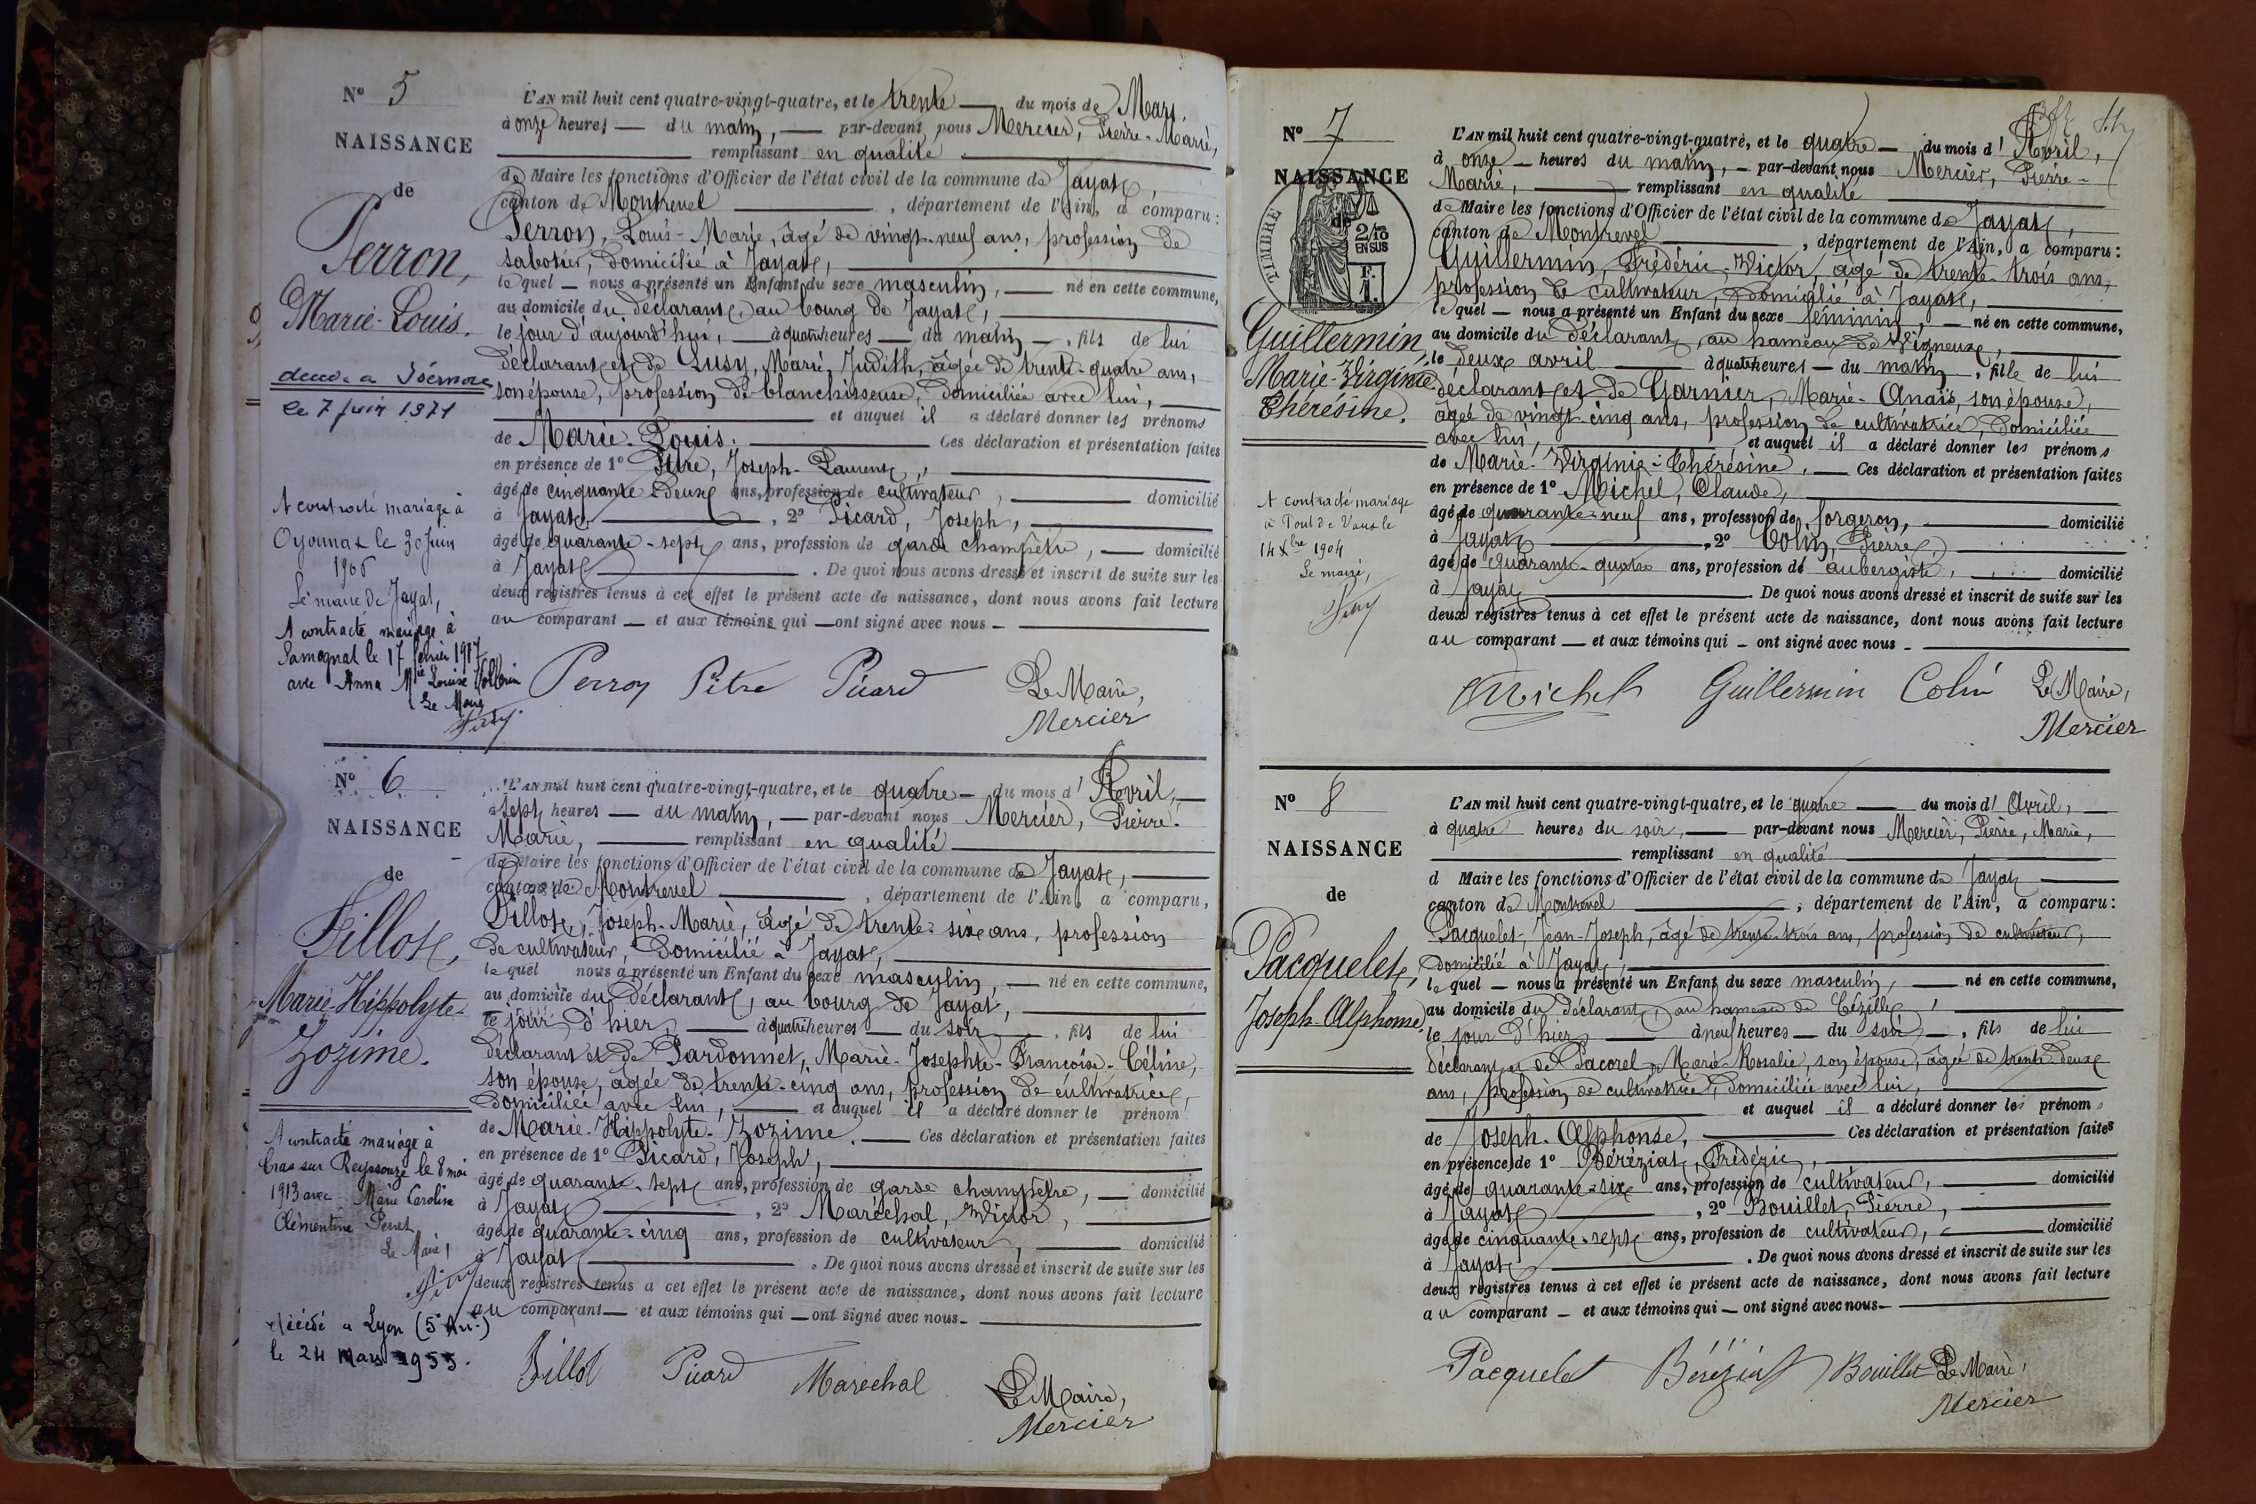 N° 5
NAISSANCE
de
Perron,
Marie-Louis.
décédé à Izernore
le 7 juin 1971
A contracté mariage à
Oyonnax le 30 Juin
Le maire de Jayat,
A contracté mariage à
Samognat le 17 février 1917
avec Anna Mie Louise
Le Maire
L'AN mil huit cent quatre-vingt-quatre, et le trente — du mois de Mars,
à onze heures — du matin, — par-devant nous Mercier, Pierre-Marie,
remplissant en qualité
de Maire les fonctions d'Officier de l'état civil de la commune de Jayat,
canton de Montrevel , département de l'Ain, a comparu :
Perron, Louis-Marie, âgé de vingt-neuf ans, profession de
sabotier, domicilié à Jayat,
lequel — nous a présenté un Enfant du sexe masculin, — né en cette commune,
au domicile du déclarant, au bourg de Jayat,
le jour d'aujourd'hui, — à quatre heures — du matin —, fils de lui
déclarant et de Pusy, Marie, Judith, âgée de trente-quatre ans,
son épouse, profession de blanchisseuse, domiciliée avec lui,
et auquel il a déclaré donner les prénoms
de Marie-Louis. Ces déclaration et présentation faites
en présence de 1° Pitre, Joseph-Laurent,
âgé de cinquante-deux ans, profession de cultivateur, domicilié
à Jayat, 2° Picard, Joseph,
âgé de quarante-sept ans, profession de garde champêtre, — domicilié
à Jayat . De quoi nous avons dressé et inscrit de suite sur les
deux registres tenus à cet effet le présent acte de naissance, dont nous avons fait lecture
au comparant — et aux témoins qui — ont signé avec nous —
Perron Pitre Picard Le Maire,
Mercier
N° 6
NAISSANCE
de
Billot,
Marie-Hippolyte-
Zozime.
A contracté mariage à
Cras sur Reyssouze le 8 mai
1913 avec Marie Caroline
Clémentine Perret
Le Maire,
Décédé à Lyon (5e Arr.)
le 24 Mars 1955.
L'AN mil huit cent quatre-vingt-quatre, et le quatre — du mois d'Avril, —
à sept heures — du matin, — par-devant nous Mercier, Pierre-
Marie, remplissant en qualité
de Maire les fonctions d'Officier de l'état civil de la commune de Jayat,
canton de Montrevel , département de l'Ain, a comparu,
Billot, Joseph-Marie, âgé de trente-six ans, profession
de cultivateur, domicilié à Jayat,
lequel nous a présenté un Enfant du sexe masculin, — né en cette commune,
au domicile du déclarant, au bourg de Jayat,
le jour d'hier, — à quatre heures — du soir — , fils de lui
déclarant et de Pardonnet, Marie-Josephte-Françoise-Céline,
son épouse, âgée de trente-cinq ans, profession de cultivatrice,
domiciliée avec lui, — et auquel il a déclaré donner le prénom
de Marie-Hippolyte-Zozime. — Ces déclaration et présentation faites
en présence de 1° Picard, Joseph,
âgé de quarante-sept ans, profession de garde champêtre, — domicilié
à Jayat , 2° Maréchal, Victor,
âgé de quarante-cinq ans, profession de cultivateur, domicilié
à Jayat . De quoi nous avons dressé et inscrit de suite sur les
deux registres tenus à cet effet le présent acte de naissance, dont nous avons fait lecture
au comparant — et aux témoins qui — ont signé avec nous —
Billot Picard Maréchal Le Maire,
Mercier
N° 7
NAISSANCE
de
TIMBRE
2/10
EN SUS
F.
1.
Guillermin,
Marie-Virginie-
Thérésine.
A contracté mariage
à Pont de Vaux le
14 Xbre 1904
Le maire,
L'AN mil huit cent quatre-vingt-quatre, et le quatre — du mois d'Avril,
à onze — heures du matin, — par-devant nous Mercier, Pierre-
Marie, remplissant en qualité
de Maire les fonctions d'Officier de l'état civil de la commune de Jayat,
canton de Montrevel , département de l'Ain, a comparu :
Guillermin, Frédéric-Victor, âgé de trente-trois ans,
profession de cultivateur, domicilié à Jayat,
lequel — nous a présenté un Enfant du sexe féminin, — né en cette commune,
au domicile du déclarant, au hameau de Vigneux,
le deux avril à quatre heures — du matin , fille de lui
déclarant et de Garnier, Marie-Anaïs, son épouse,
âgée de vingt-cinq ans, profession de cultivatrice, domiciliée
avec lui, et auquel il a déclaré donner les prénoms
de Marie-Virginie-Thérésine. — Ces déclaration et présentation faites
en présence de 1° Michel, Claude,
âgé de quarante-neuf ans, profession de forgeron, domicilié
à Jayat , 2° Colin, Pierre,
âgé de quarante-quatre ans, profession de aubergiste, domicilié
à Jayat . De quoi nous avons dressé et inscrit de suite sur les
deux registres tenus à cet effet le présent acte de naissance, dont nous avons fait lecture
au comparant — et aux témoins qui — ont signé avec nous —
Michel Guillermin Colin Le Maire,
Mercier
N° 8
NAISSANCE
de
Pacquelet,
Joseph-Alphonse.
L'AN mil huit cent quatre-vingt-quatre, et le quatre — du mois d'Avril, —
à quatre heures du soir, — par-devant nous Mercier, Pierre, Marie,
remplissant en qualité
d Maire les fonctions d'Officier de l'état civil de la commune de Jayat
canton de Montrevel , département de l'Ain, a comparu :
Pacquelet, Jean-Joseph, âgé de trente-trois ans, profession de cultivateur,
domicilié à Jayat,
lequel — nous a présenté un Enfant du sexe masculin, — né en cette commune,
au domicile du déclarant, au hameau de Cézille,
le jour d'hier à neuf heures — du soir —, fils de lui
déclarant et de Pacorel, Marie-Rosalie, son épouse, âgée de trente-deux
ans, profession de cultivatrice, domiciliée avec lui,
et auquel il a déclaré donner les prénoms
de Joseph-Alphonse, Ces déclaration et présentation faites
en présence de 1° Béréziat, Frédéric,
âgé de quarante-six ans, profession de cultivateur, domicilié
à Jayat , 2° Bouillet, Pierre,
âgé de cinquante-sept ans, profession de cultivateur, domicilié
à Jayat . De quoi nous avons dressé et inscrit de suite sur les
deux registres tenus à cet effet le présent acte de naissance, dont nous avons fait lecture
au comparant — et aux témoins qui — ont signé avec nous —
Pacquelet Béréziat Bouillet Le Maire,
Mercier